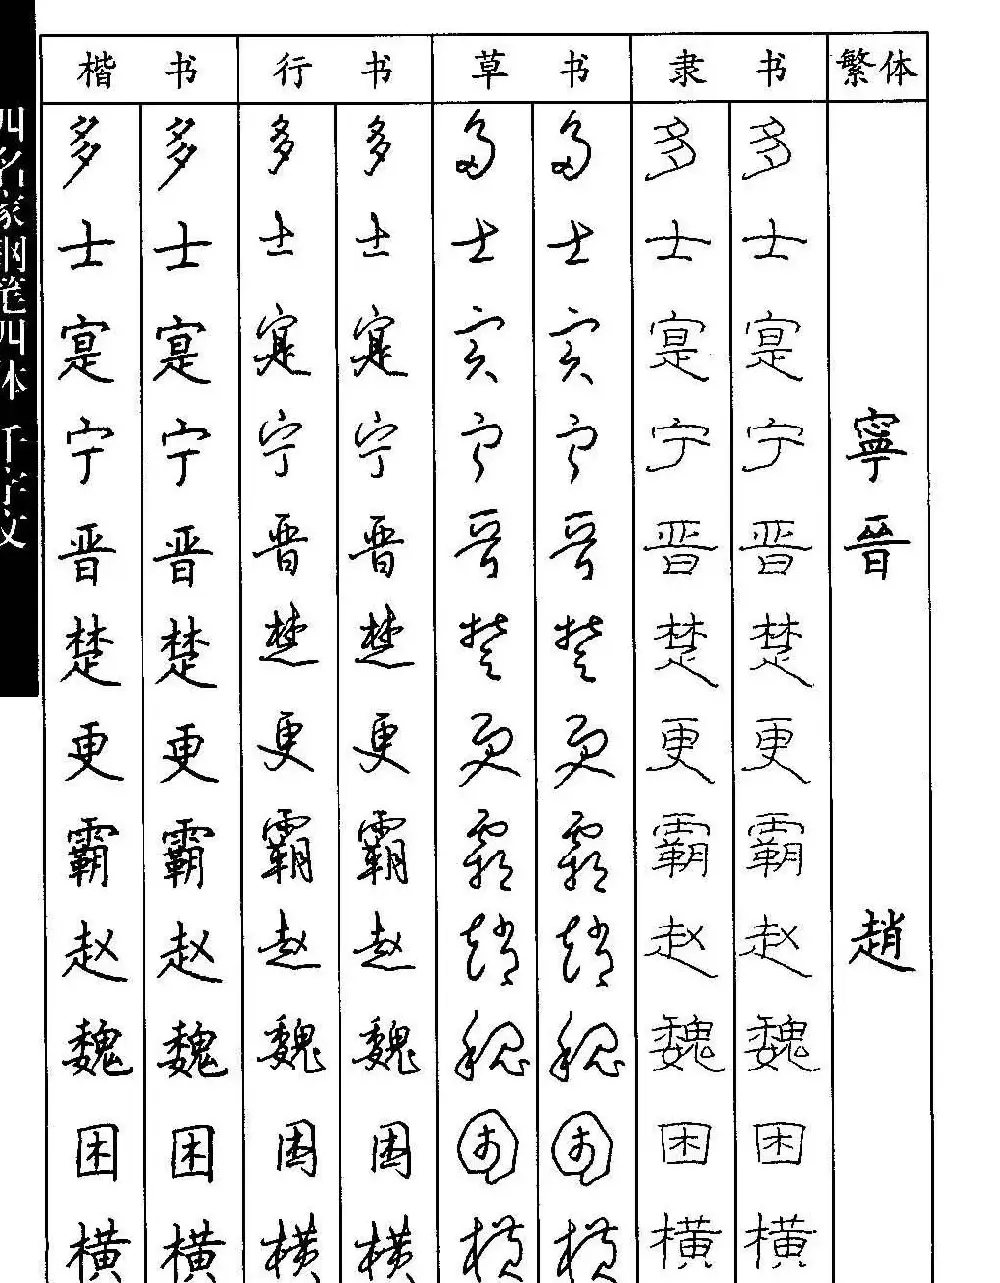 楷书 行书 草书 隶书 繁体
多 多 多 多 多 多 多 多
士 士 士 士 士 士 士 士
寔 寔 寔 寔 寔 寔 寔 寔
宁 宁 宁 宁 宁 宁 宁 宁 寧
晋 晋 晋 晋 晋 晋 晋 晋 晉
楚 楚 楚 楚 楚 楚 楚 楚
更 更 更 更 更 更 更 更
霸 霸 霸 霸 霸 霸 霸 霸
赵 赵 赵 赵 趙 趙 赵 赵 趙
魏 魏 魏 魏 魏 魏 魏 魏
困 困 困 困 困 困 困 困
横 横 横 横 横 横 横 横
四名家钢笔四体 千字文